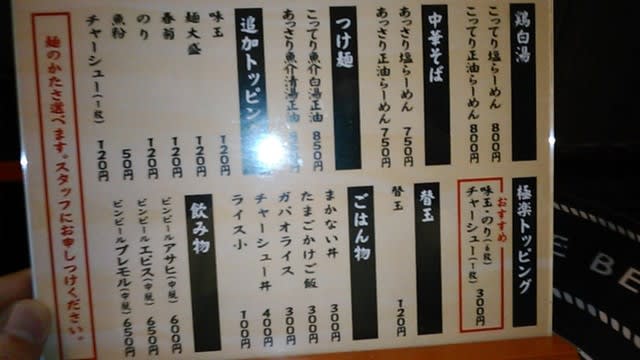 鶏白湯
こってり塩らーめん 800円
こってり正油らーめん 800円
中華そば
あっさり塩らーめん 750円
あっさり正油らーめん 750円
つけ麺
こってり魚介白湯正油 850円
あっさり魚介清湯正油 円
追加トッピン
味玉 120円
麺大盛 120円
春菊 120円
のり 120円
魚粉 50円
チャーシュー(1枚) 120円
極楽トッピング
おすすめ
味玉・のり(6枚)
チャーシュー(1枚) 300円
替玉
替玉 120円
ごはん物
まかない丼 300円
たまごかけご飯 300円
ガパオライス 300円
チャーシュー丼 400円
ライス小 100円
飲み物
ビンビールアサヒ(中瓶) 600円
ビンビールエビス(中瓶) 650円
ビンビールプレモル(中瓶) 650円
麺のかたさ選べます。スタッフにお申しつけください。
E BE